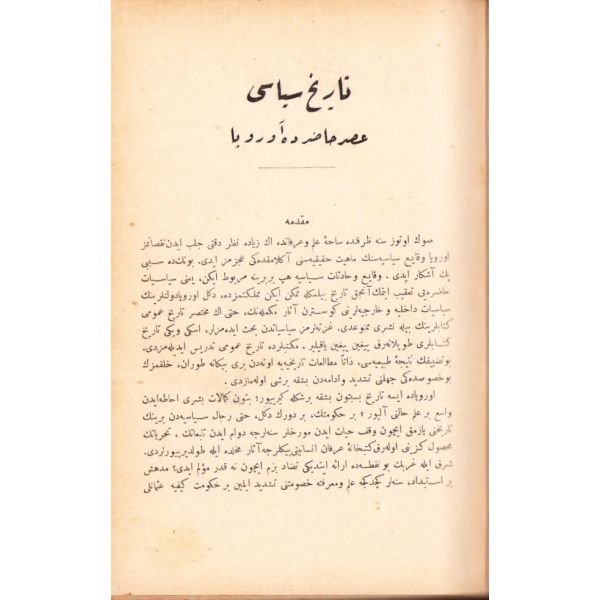 تاریخ سیاسی
عصر حاضرده آوروپا
مقدمه
صوك اوتوز سنه ظرفنده ساحۀ علم و عرفانده اك زیاده نظر دقتی جلب ایدن نقصانمز
اوروپا وقایع سیاسیه‌سنك ماهیت حقیقیه‌سنی آكلامقده‌كی عجزمز ایدی. بونك‌ده سببی
پك آشكار ایدی. وقایع و حادثات سیاسیه هپ بربرینه مربوط ایكن، یعنی سیاسیات
حاضره‌یی تعقیب ایتمك آنجق تاریخ بیلمكله ممكن ایكن مملكتمزده، دكل اوروپا دولتلرینك
سیاسیات داخلیه و خارجیه‌لرنی كوسترن آثار مكمله‌نك، حتی اك مختصر تاریخ عمومی
كتابلرینك بیله نشری ممنوعدی. غزته‌لرمز سیاسیاتدن بحث ایده‌مزلر، اسكی ویكی تاریخ
كتابلری طوپلانه‌رق ییغین ییغین یاقیلیر. مكتبلرده تاریخ عمومی تدریس ایدیله‌مزدی.
بو تضییقك نتیجۀ طبیعیه‌سی، ذاتاً مطالعات تاریخیه‌یه اوته‌دن بری بیكانه طوران، خلقمزك
بو خصوصده‌كی جهلنی تشدید و ادامه‌دن بشقه برشی اوله‌مازدی.
اوروپاده ایسه تاریخ بسبتون بشقه برشكله كیریور؛ بتون كمالات بشری احاطه ایدن
واسع بر علم حالنی آلیور؛ بر حكومتك، بر دورك دكل، حتی رجال سیاسیه‌دن برینك
تاریخنی یازمق ایچون وقف حیات ایدن مورخلر سنه‌لرجه دوام ایدن تتبعاتك، تحریاتك
محصول كزینی اوله‌رق كتبخانۀ عرفان انسانیتی بیكلرجه آثار مخلده ایله طولدیریورلردی.
شرق ایله غربك بو نقطه‌ده ارائه ایتدیكی تضاد بزم ایچون نه قدر مؤلم ایدی؟ مدهش
بر استبداد، سنه‌لر كچدكجه علم و معرفته خصومتنی تشدید ایلین بر حكومت كیفیه عثمانلی